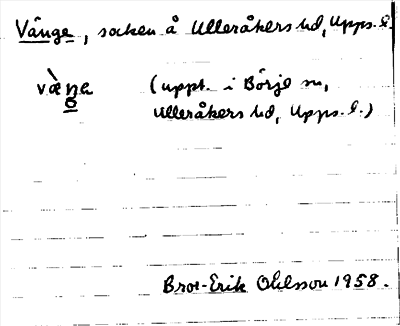 Vänge, socken å Ulleråkers hd, Upps. l.
vàŋe (uppt. i Börje sn,
Ulleråkers hd, Upps. l.)
Bror-Erik Ohlsson 1958.